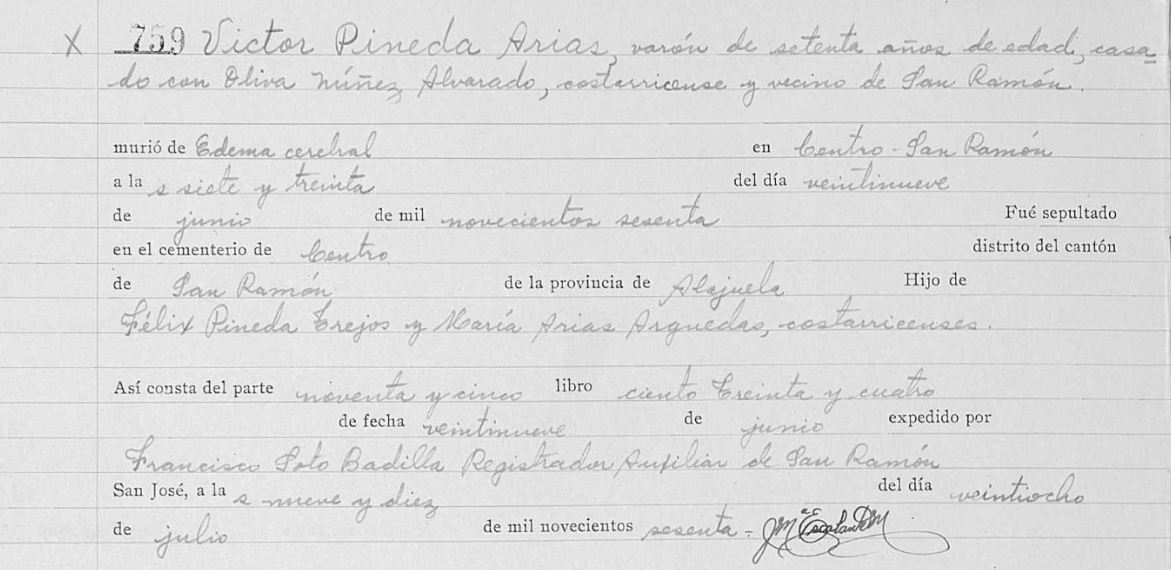 X 759 Victor Pineda Arias, varón de setenta años de edad, casa
do con Oliva Núñez Alvarado, costarricense y vecino de San Ramón.
murió de Edema cerebral en Centro - San Ramón
a la s siete y treinta del día veintinueve
de junio de mil novecientos sesenta Fué sepultado
en el cementerio de Centro distrito del cantón
de San Ramón de la provincia de Alajuela Hijo de
Félix Pineda Trejos y María Arias Arguedas, costarricenses.
Así consta del parte noventa y cinco libro ciento treinta y cuatro
de fecha veintinueve de junio expedido por
Francisco Soto Badilla Registrador Auxiliar de San Ramón
San José, a la s nueve y diez del día veintiocho
de julio de mil novecientos sesenta.-